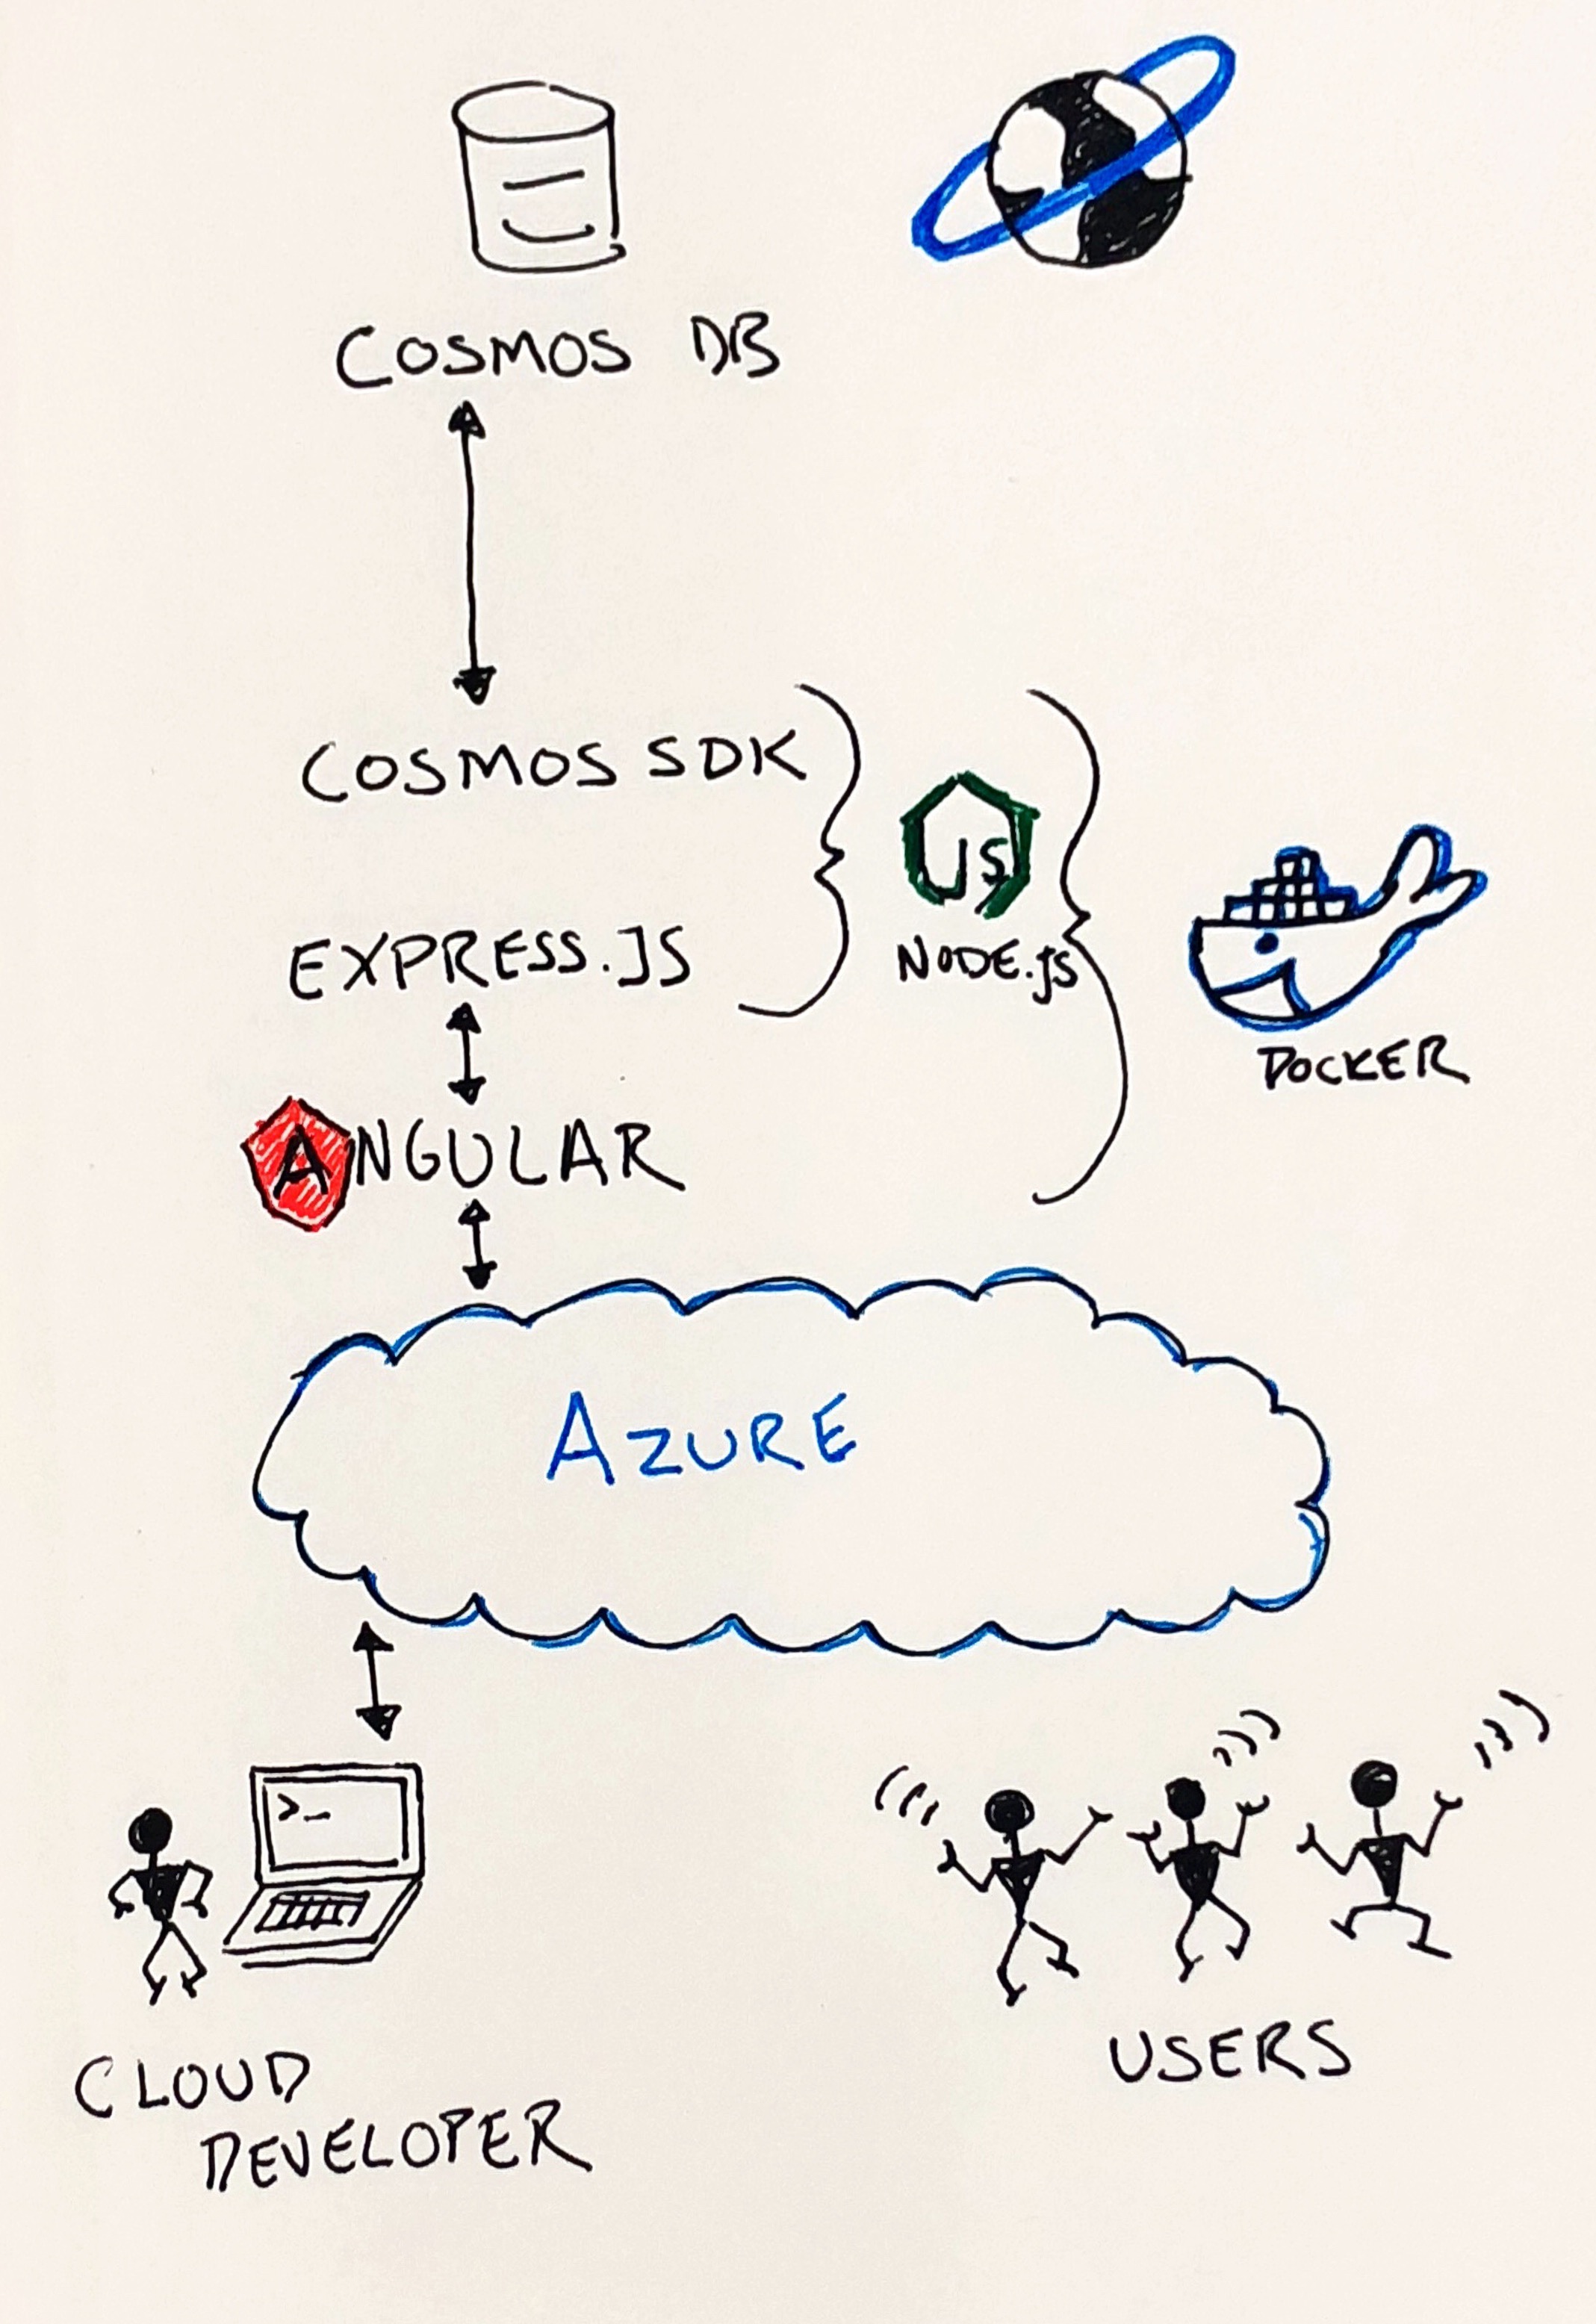 COSMOS DB
COSMOS SDK
JS
EXPRESS.JS
NODE.js
DOCKER
ANGULAR
AZURE
>_
CLOUD
DEVELOPER
USERS